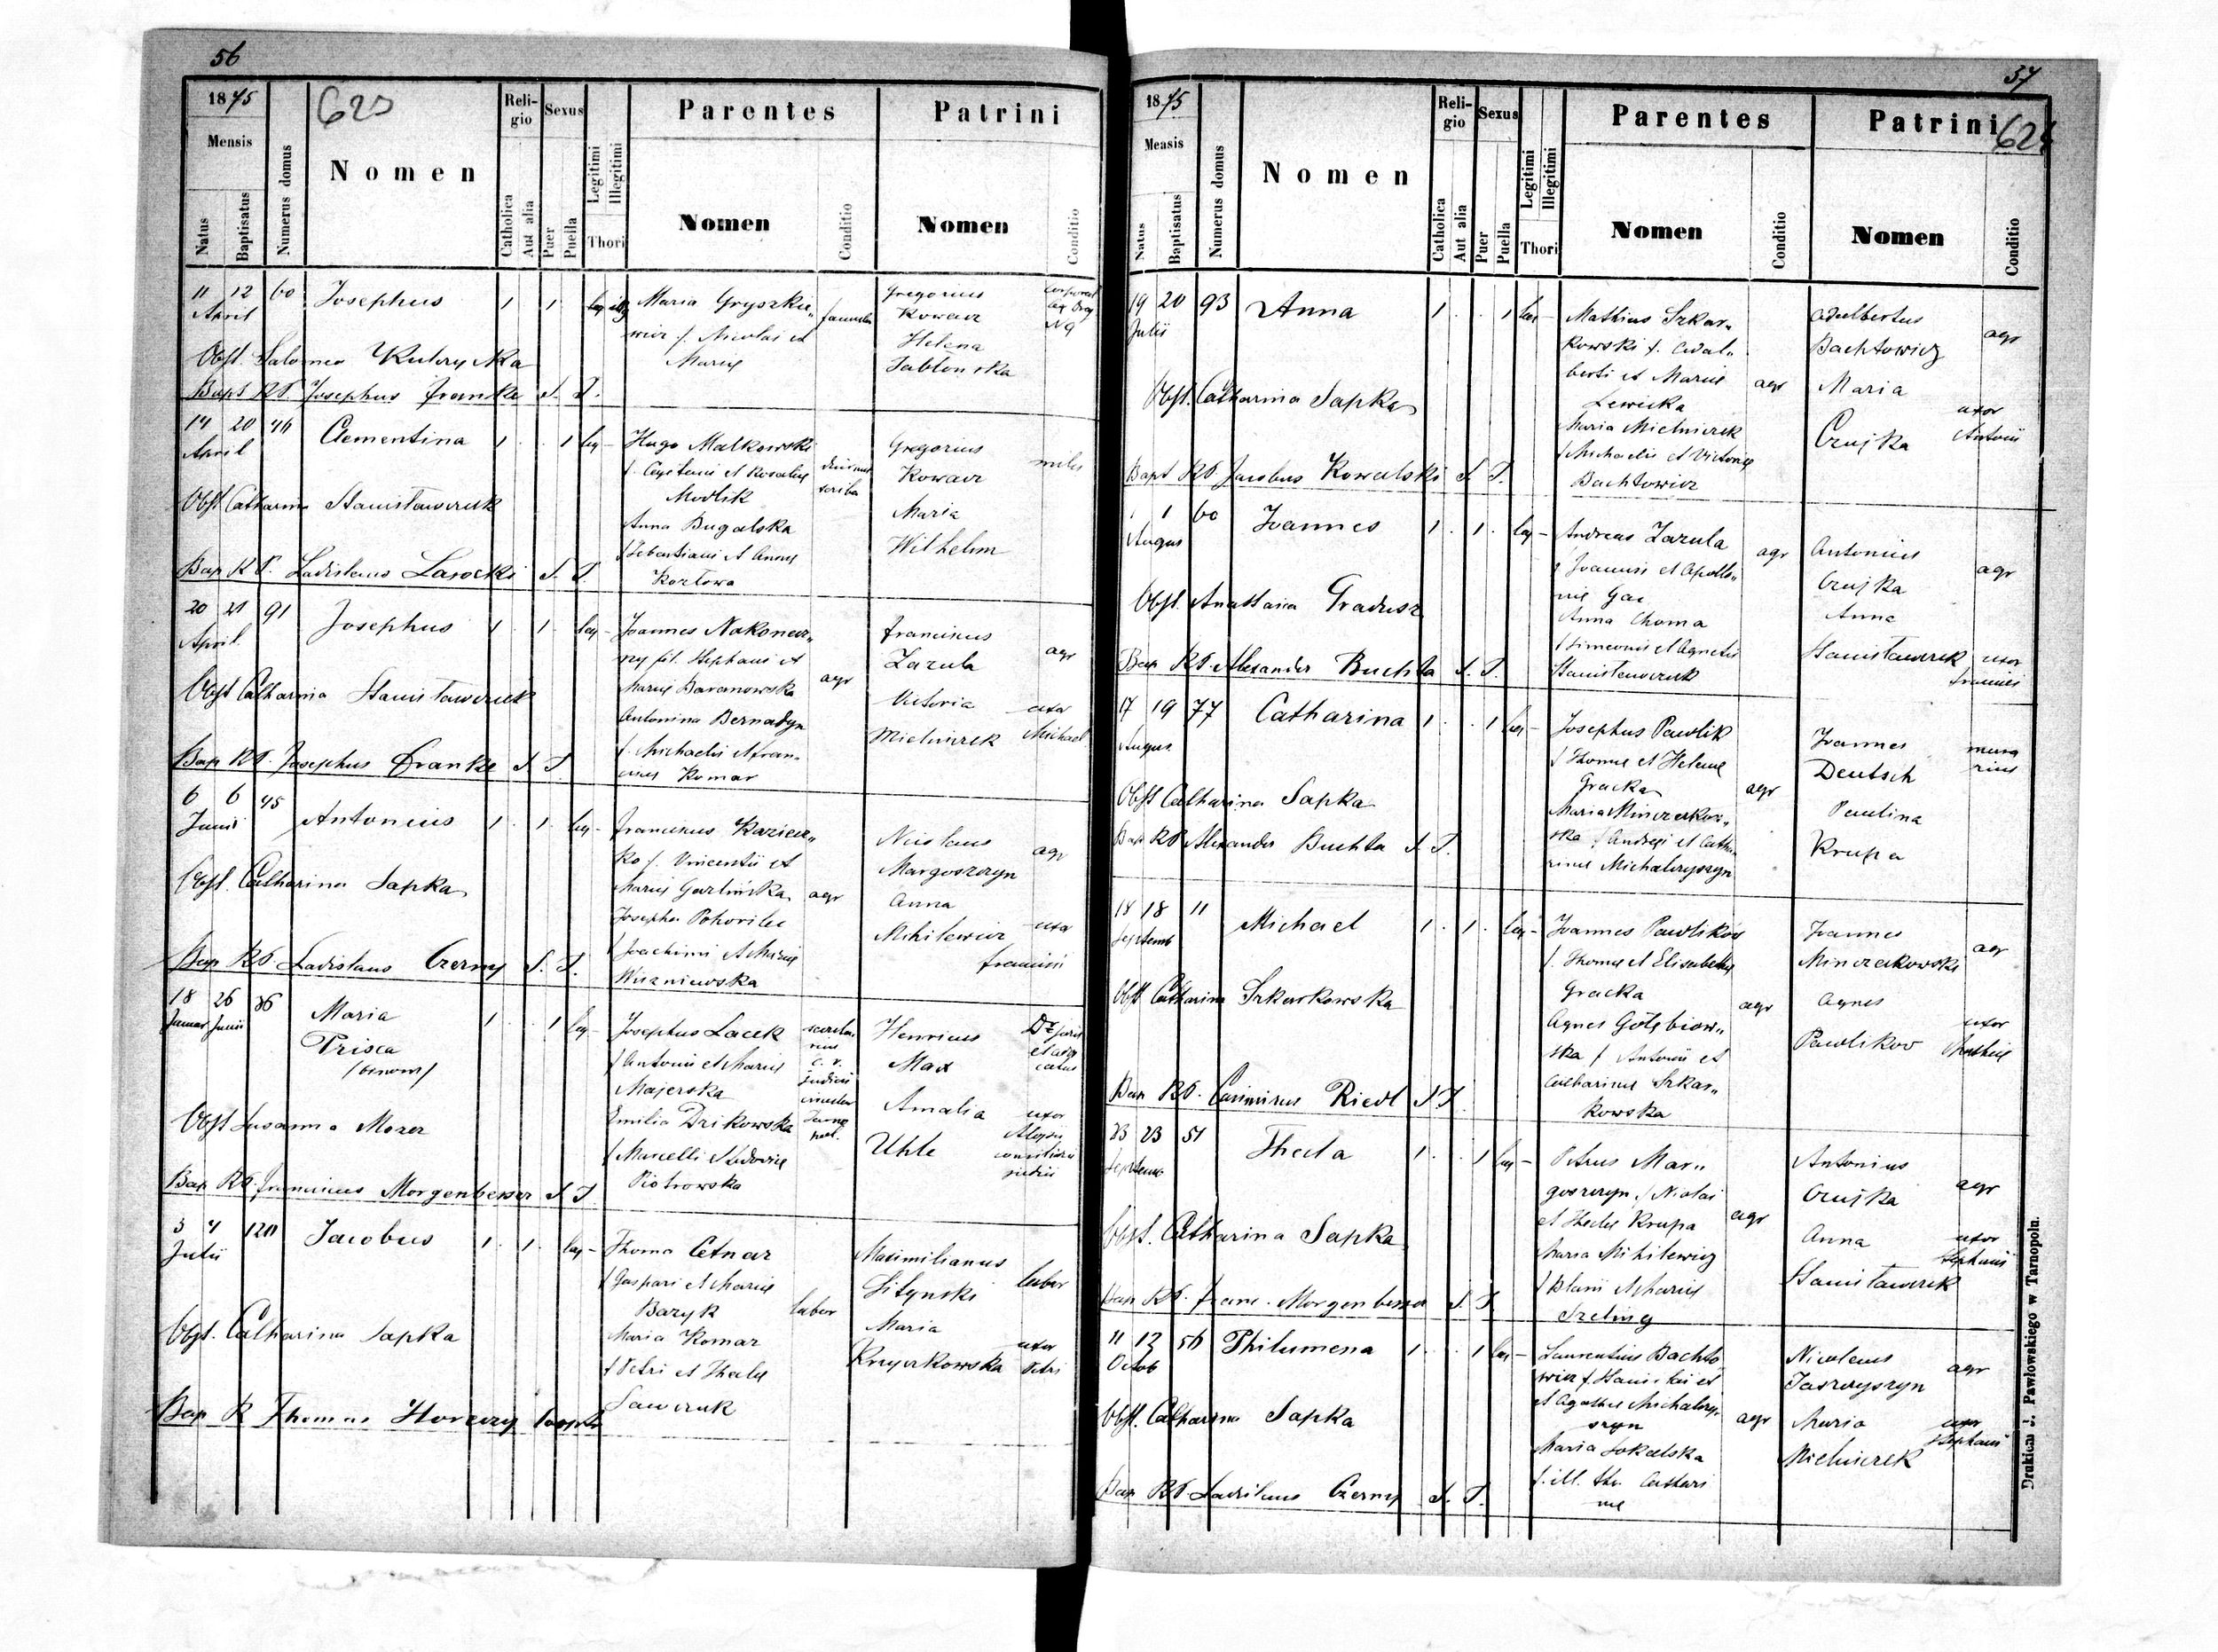 56
1875
623
Mensis
Natus
Baptisatus
Numerus domus
Nomen
Religio
Catholica
Aut alia
Sexus
Puer
Puella
Legitimi
Illegitimi
Thori
Parentes
Nomen
Conditio
Patrini
Nomen
Conditio
11 12 60 Josephus 1 1
April
Maria Gryszkie„
wicz f. Nicolai et
Mariæ
famula
Gregorius
Kowacz
Helena
Jabłonska
Obst. Salomea
Bapt RP. Josephus Franke S. J.
14 20 46 Clementina 1 1 leg
April
Hugo Malkowski
f. Cajetani et Rosaliæ
Modlik
Anna Bugalska
f Sebastiani et Annæ
Kozłowa
diurnus
scriba
Gregorius
Kowacz
miles
Maria
Wilhelm
Obst Catharina Stanisławczuk
Bap RP. Ladislaus Lasocki S. J.
20 21 91 Josephus 1 1 leg -
April
Joannes Nakonecz„
ny fil. Stephani et
Mariæ Baranowska
Antonina Bernadyn
f. Michaelis et Fran„
ciscæ Komar
agr
Franciscus
Zazula
agr
Victoria
uxor
Mielniczek
Michael
Obst Catharina Stanisławczuk
Bap RP. Josephus Franke S J.
6 6 45 Antonius 1 1 leg -
Junii
Franciscus Kaziew„
ko f. Vincentii et
Mariæ Garlińska
Josepha Pohorilec
f Joachimi et Mariæ
Wiszniewska
agr
Nicolaus
Margoszczyn
agr
Anna
Mihilewicz
uxor
Francisci
Obst. Catharina Sapka
Bap RP Ladislaus Czerny S. J.
18 26 36 Maria 1 1 leg -
Januar Junii
Prisca
/binom/
Josephus Lacek
f Antonii et Mariæ
Majerska
Emilia Dzikowska
f Marcelli et Ludovicæ
Piotrowska
Henricus
Max
Amalia
Uhle
uxor
Aloysii
Obst Susanna Mozer
Bap RP. Franciscus Morgenbesser S J
3 4 120 Jacobus 1 1 leg -
Julii
Thoma Cetnar
f Gaspari et Mariæ
Bazyk
Maria Komar
f Petri et Theclæ
Sawczuk
labor
Maximilianus
Sitynski
labor
Maria
Krzyczkowska
uxor
Petri
Obst. Catharina Sapka
Bap R Thomas
57
1875
624
Mensis
Natus
Baptisatus
Numerus domus
Nomen
Religio
Catholica
Aut alia
Sexus
Puer
Puella
Legitimi
Illegitimi
Thori
Parentes
Nomen
Conditio
Patrini
Nomen
Conditio
19 20 93 Anna 1 1 leg -
Julii
Mathias Szkar„
kowski f. Adal„
berti et Mariæ
Lewicka
Maria Mielniczek
f Michaelis et Victoriæ
Bachtowicz
agr
Adalbertus
Bachtowicz
agr
Maria
Czujka
uxor
Antonii
Obst. Catharina Sapka
Bapt RP Jacobus Kowalski S. J.
1 1 60 Joannes 1 1 leg -
Augus
Andreas Zazula
f Joannis et Apollo„
niæ Gac
Anna Choma
f Simeonis et Agnetis
Stanisławczuk
agr
Antonius
Czujka
agr
Anna
Stanisławczuk
uxor
Obst. Anastasia Gradusz
Bap RP. Alexander Buchta S. J.
17 19 77 Catharina 1 1 leg -
Augus
Josephus Pawlik
f Thomæ et Helenæ
Gracka
Maria Minczakow„
ska f Andreæ et Catha
rinæ Michalczyszyn
agr
Joannes
Deutsch
mura
rius
Paulina
Krupa
Obst Catharina Sapka
Bap RP Alexander Buchta S J.
18 18 11 Michael 1 1 leg -
Septemb
Joannes Pawlików
f. Thomæ et Elisabethæ
Gracka
Agnes Gołębiow„
ska f Antonii et
Catharinæ Szkar„
kowska
agr
Joannes
Minczakowski
agr
Agnes
Pawlikow
uxor
Obst Catharina Szkarkowska
Bap RP. Casimirus Riedl S J.
23 23 51 Thecla 1 1 leg -
Septemb
Petrus Mar„
goszczyn f Nicolai
et Theclæ Krupa
Maria Mihilewicz
f Blasii et Mariæ
Szeling
agr
Antonius
Czujka
agr
Anna
Stanisławczuk
uxor
Stephani
Obst. Catharina Sapka
Bap RP. Franc. Morgenbesser S. J
11 12 56 Philumena 1 1 leg -
Octob
Laurentius Bachto
wicz f. Stanislai et
et Agathæ Michalczy„
szyn
Maria Sokalska
f. ill. thr. Cathari
næ
agr
Nicolaus
Jaszczyszyn
agr
Maria
Mielniczek
uxor
Stephani
Obst. Catharina Sapka
Bap RP Ladislaus Czerny S. J.
Drukiem J. Pawłowskiego w Tarnopolu.